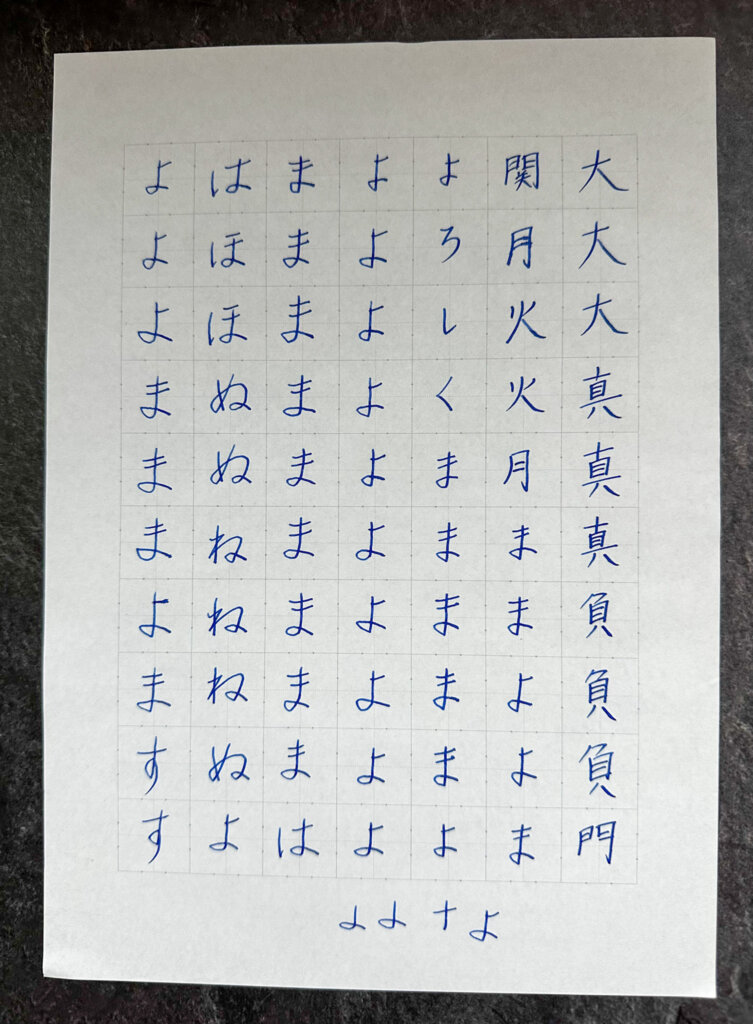 大大大真真真負負負門
関月火火月ままよよま
よろしくまままままよ
よよよよよよよよよよ
まままままままままは
はほほぬぬねねねぬよ
よよよまままよますす
よ